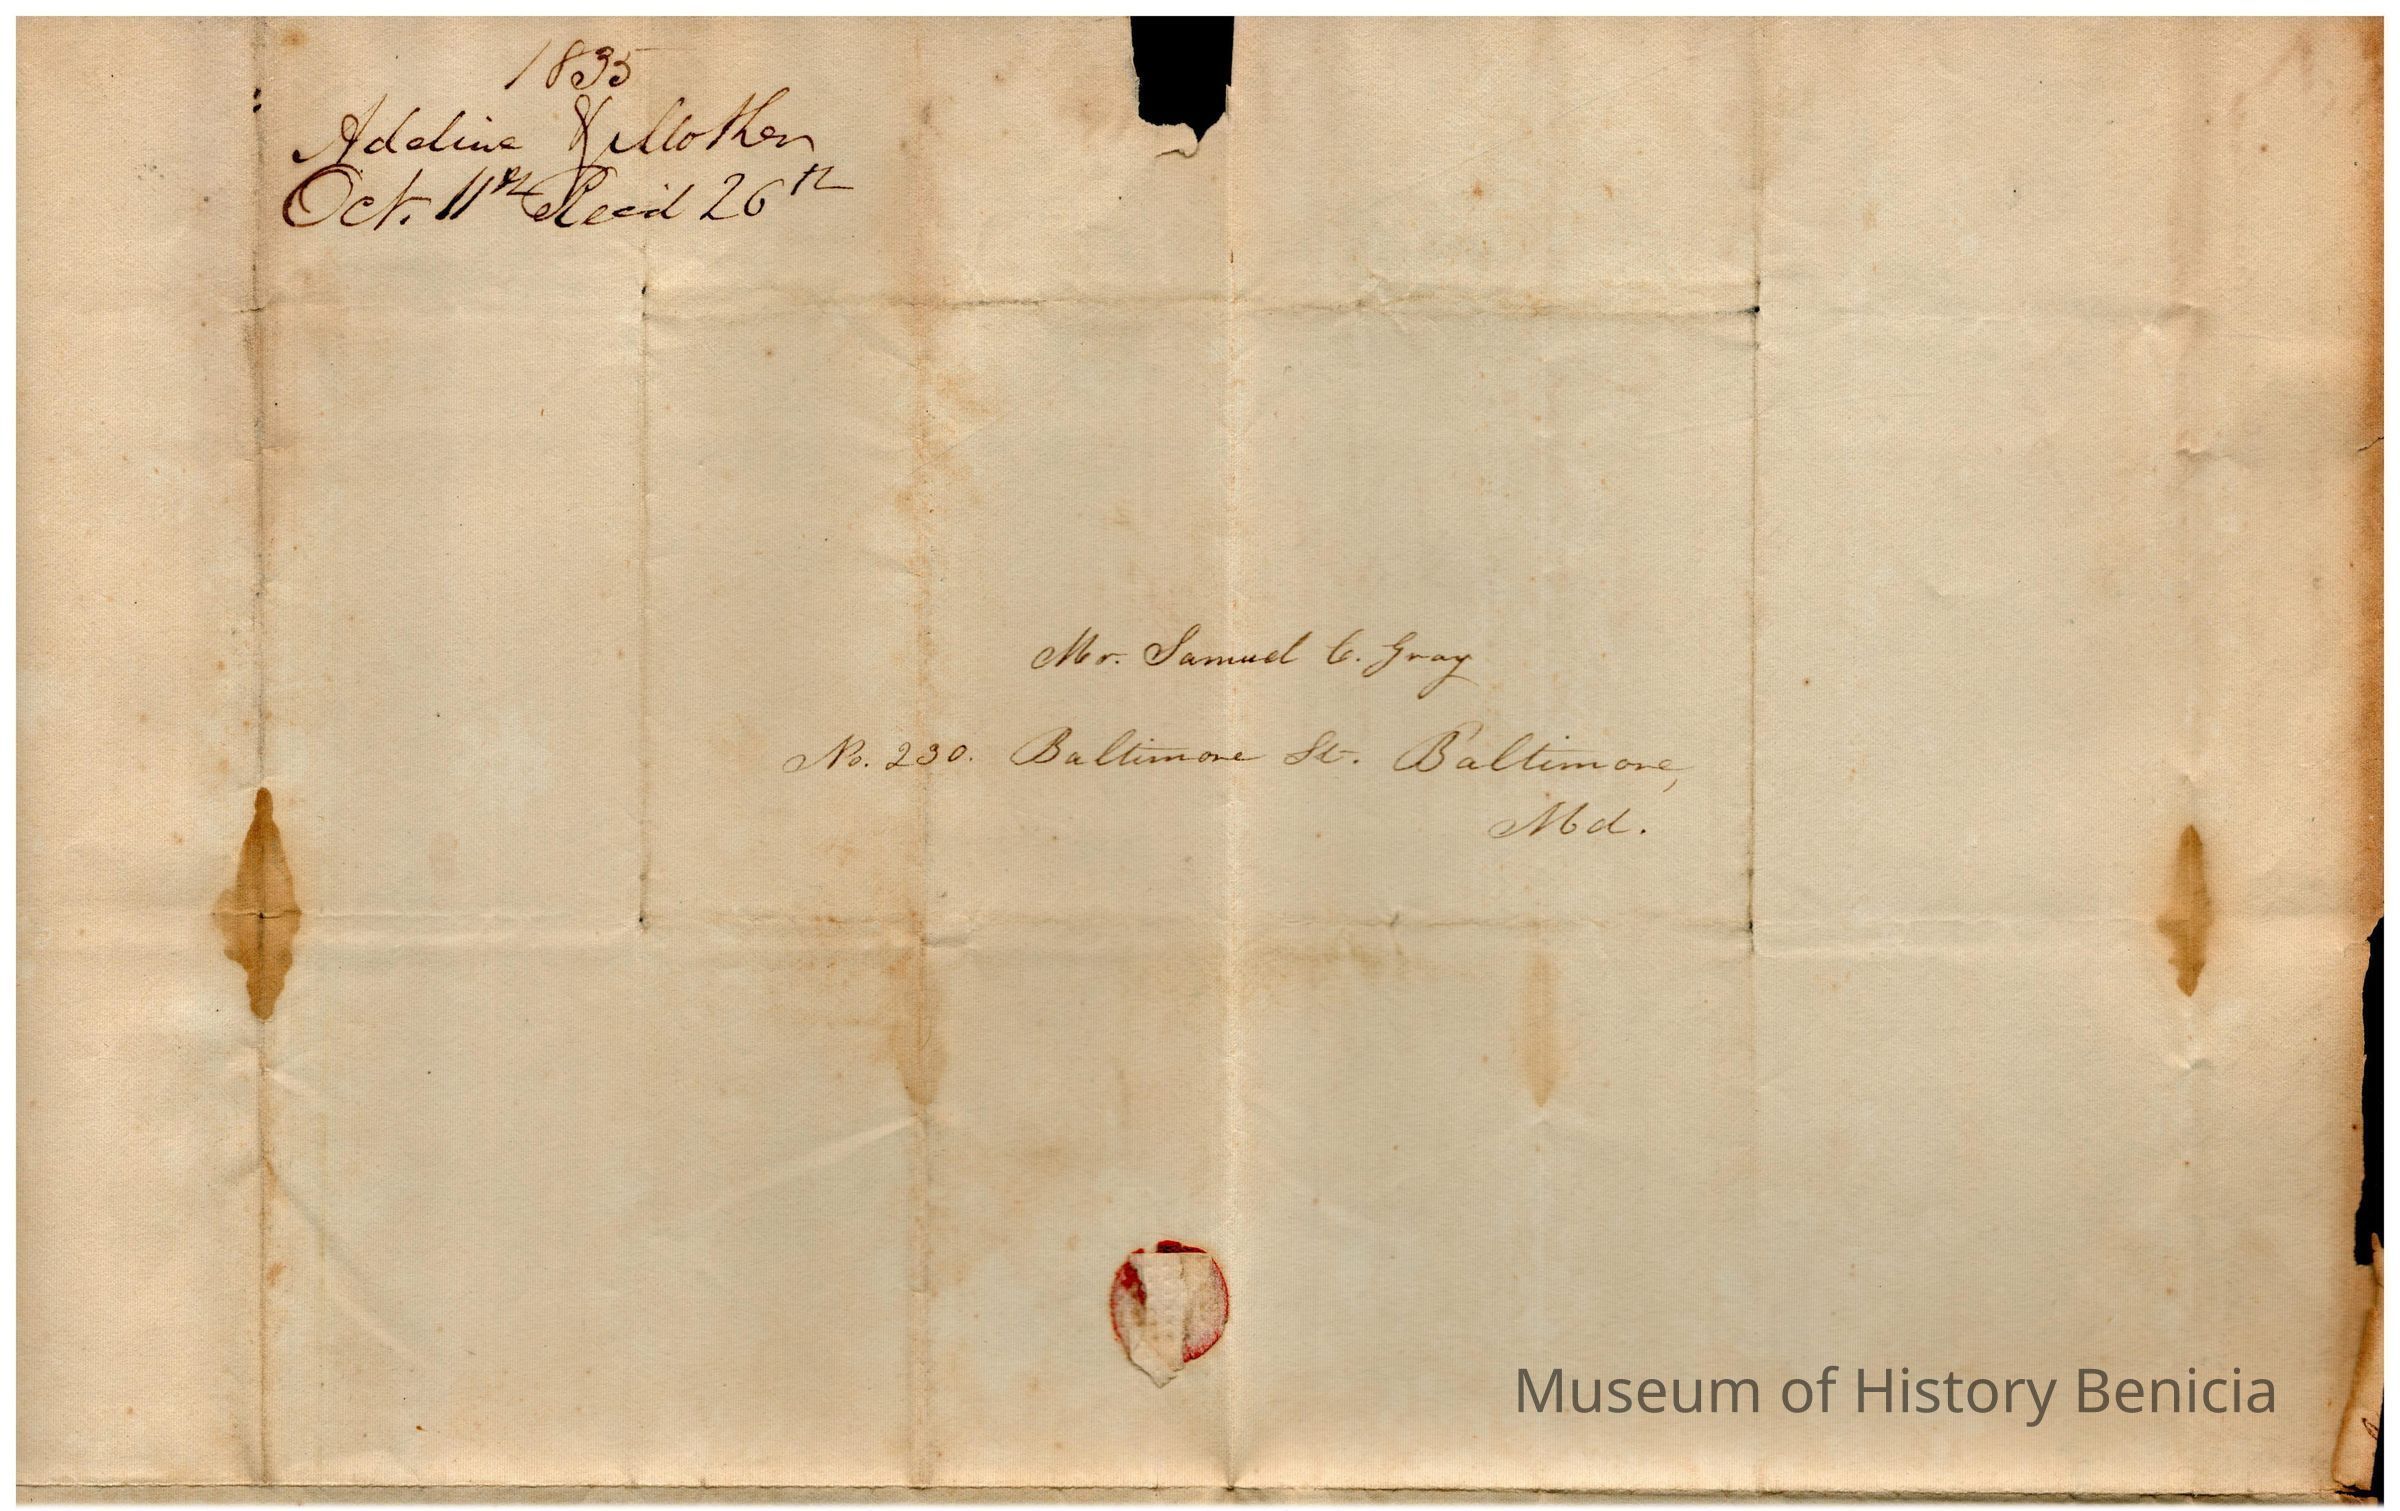 1835
Adeline & Mother
Oct. 11th Rec'd 26th
Mr. Samuel C. Gray
No. 230. Baltimore St. Baltimore,
Md.
Museum of History Benicia